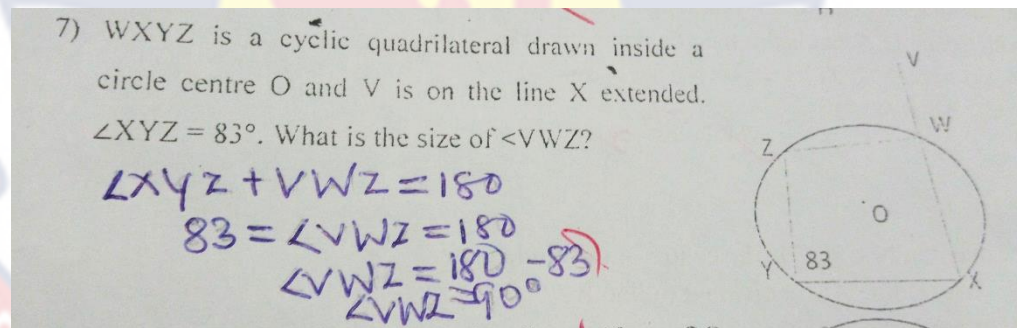 7) WXYZ is a cyclic quadrilateral drawn inside a
circle centre O and V is on the line X extended.
∠XYZ = 83°. What is the size of <VWZ?
∠XYZ + VWZ = 180
83 = ∠VWZ = 180
∠VWZ = 180 - 83
∠VWZ = 90°
V
W
Z
O
Y
83
X